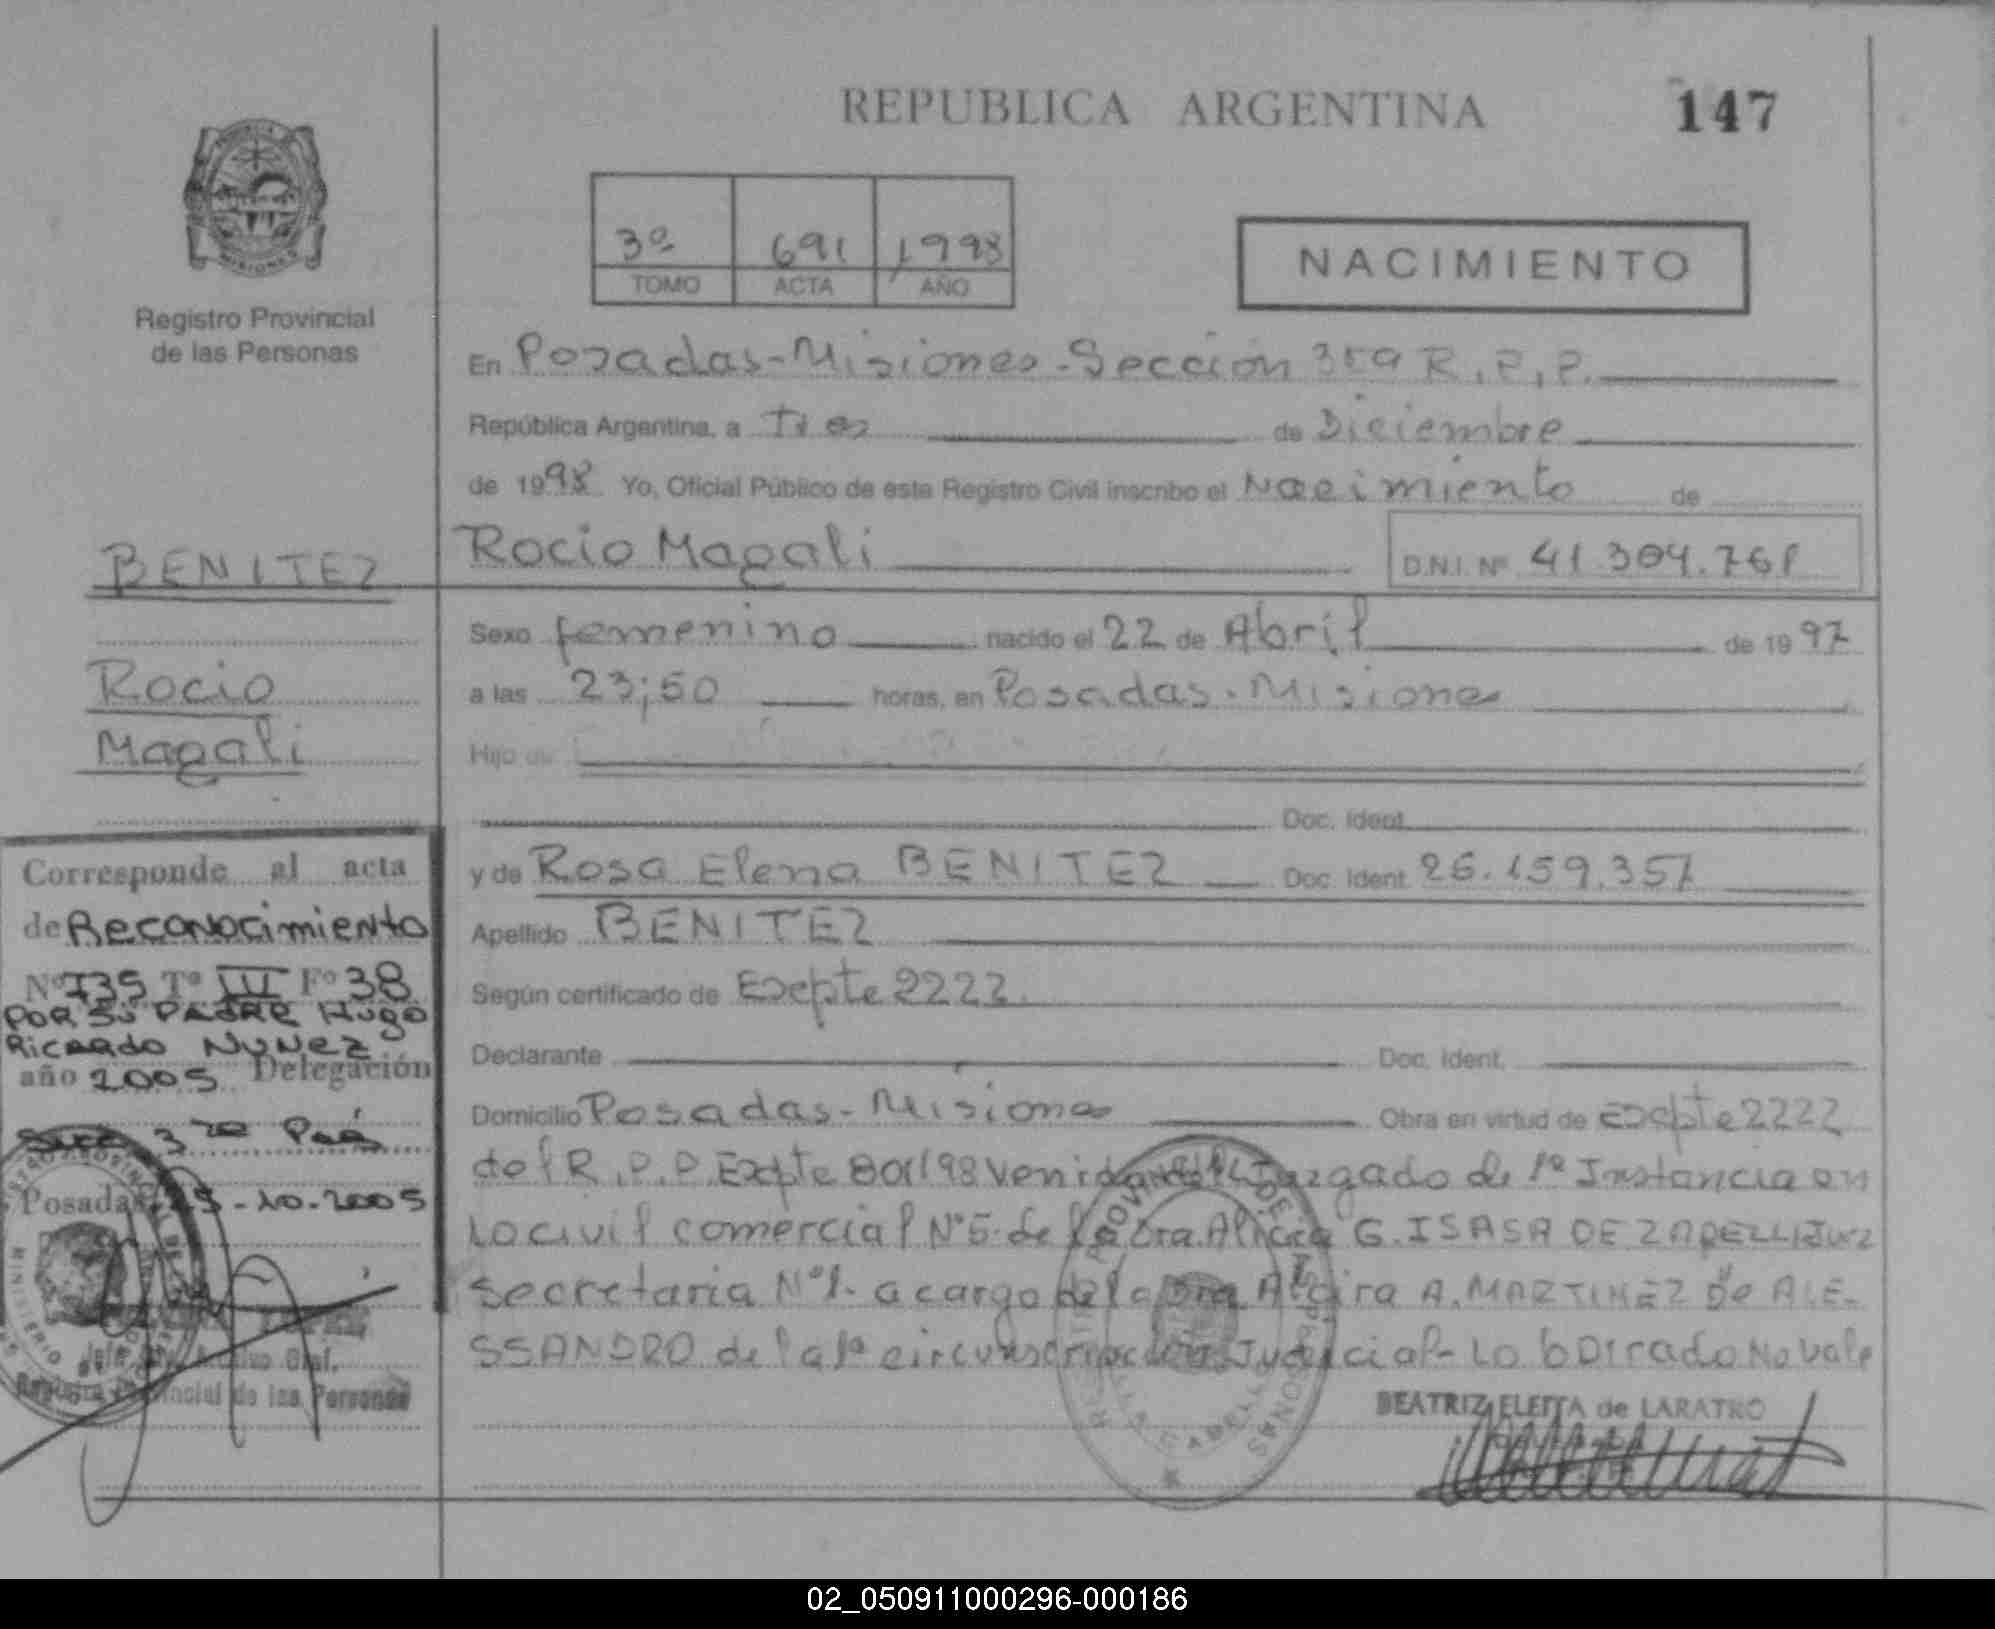 REPUBLICA ARGENTINA
147
3º 691 1998
TOMO ACTA AÑO
NACIMIENTO
MISIONES
Registro Provincial
de las Personas
En Posadas-Misiones-Sección 359 R.P.P.
República Argentina, a Tres de Diciembre
de 1998 Yo, Oficial Público de este Registro Civil inscribo el Nacimiento de
Rocio Magali
D.N.I. Nº 41.304.761
Sexo femenino nacido el 22 de Abril de 1997
a las 23;50 horas, en Posadas-Misiones
Hijo de
Doc. Ident.
y de Rosa Elena BENITEZ Doc. Ident. 26.159.351
Apellido BENITEZ
Según certificado de Expte 2222
Declarante Doc. Ident.
Domicilio Posadas-Misiones Obra en virtud de Expte 2222
del R.P.P. Expte 801/98 venido del Juzgado de 1º Instancia en
lo civil comercial Nº5 de la Dra. Alicia G. ISASA DE ZAPELLI Juez
secretaria Nº1. a cargo de la Dra A. MARTINEZ de ALE-
SSANDRO de la 1º circunscripción Judicial- Lo borrado No vale
BEATRIZ ELEITA de LARATRO
BENITEZ
Rocio
Magali
Corresponde al acta
de Reconocimiento
Nº 735 Tº III Fº 38
POR SU PADRE Hugo
Ricardo NUNEZ
año 2005 Delegación
3ra
Posadas, -10-2005
Gral.
Registro Provincial de las Personas
02_050911000296-000186